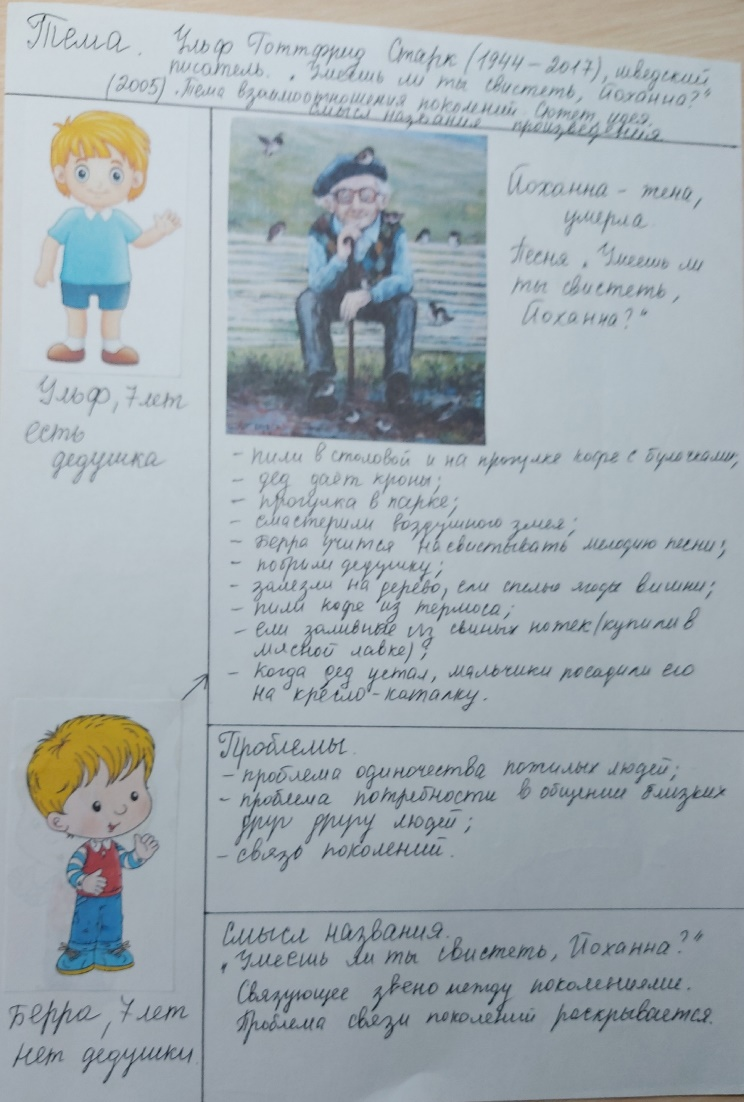 Тема. Ульф Готтфрид Старк (1944 – 2017), шведский
писатель. „Умеешь ли ты свистеть, Йоханна?“
(2005). Тема взаимоотношения поколений. Сюжет, идея.
Смысл названия произведения
Йоханна – жена,
умерла.
Песня „Умеешь ли
ты свистеть,
Йоханна?“
Ульф, 7 лет
есть
дедушка
– пили в столовой и на прогулке кофе с булочками;
– дед даёт кроны;
– прогулка в парке;
– смастерили воздушного змея;
– Берра учится насвистывать мелодию песни;
– побрили дедушку;
– залезли на дерево, ели спелые ягоды вишни;
– пили кофе из термоса;
– ели заливное из свиных ножек (купили в
мясной лавке);
– когда дед устал, мальчики посадили его
на кресло-каталку.
Проблемы.
– проблема одиночества пожилых людей;
– проблема потребности в общении близких
друг другу людей;
– связь поколений.
Смысл названия.
„Умеешь ли ты свистеть, Йоханна?“
Связующее звено между поколениями.
Проблема связи поколений раскрывается.
Берра, 7 лет
нет дедушки.